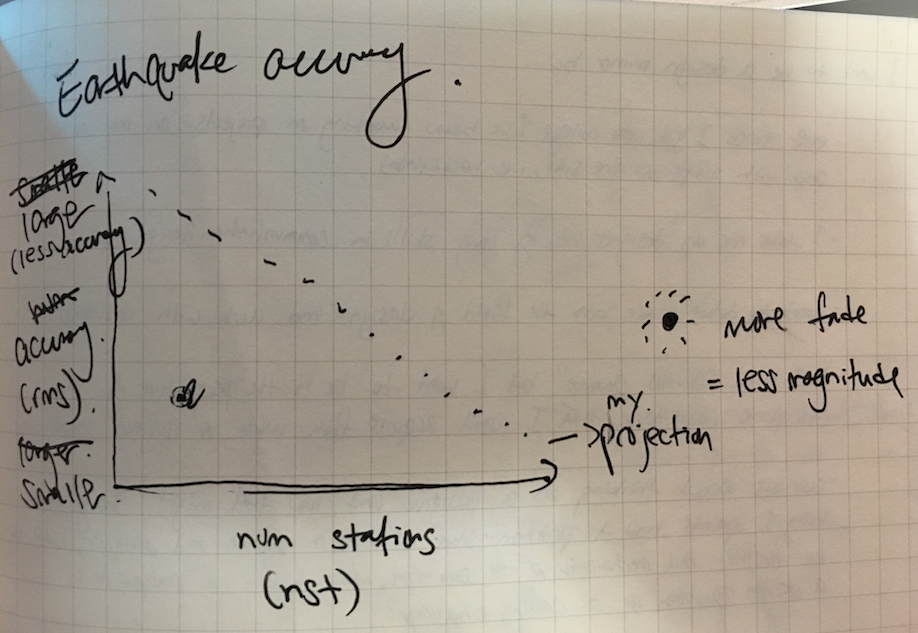 Earthquake accuracy.
large
(less accuracy)
accuracy.
(rms).
smaller
more fade
= less magnitude
my
projection
num stations
(nst)